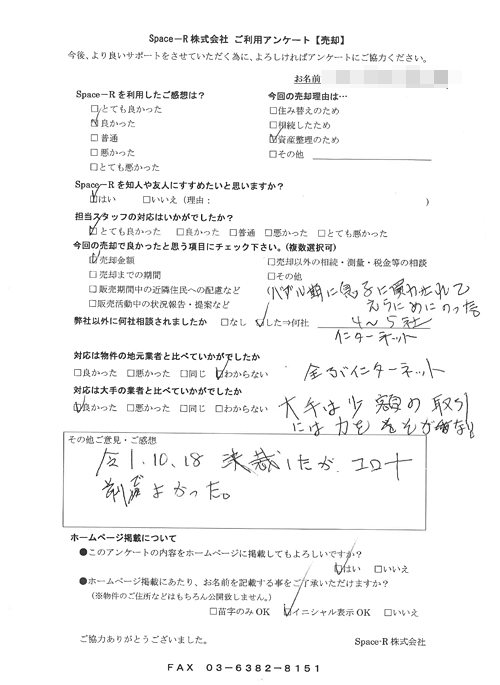 Space－R 株式会社 ご利用アンケート【売却】
今後、より良いサポートをさせていただく為に、よろしければアンケートにご協力ください。
お名前
Space－R を利用したご感想は？
□とても良かった
☑良かった
□普通
□悪かった
□とても悪かった
今回の売却理由は…
□住み替えのため
□相続したため
☑資産整理のため
□その他
Space－R を知人や友人にすすめたいと思いますか？
☑はい □いいえ（理由： ）
担当スタッフの対応はいかがでしたか？
☑とても良かった □良かった □普通 □悪かった □とても悪かった
今回の売却で良かったと思う項目にチェック下さい。（複数選択可）
☑売却金額
□売却までの期間
□販売期間中の近隣住民への配慮など
□販売活動中の状況報告・提案など
□売却以外の相続・測量・税金等の相談
□その他
(バブル前に息子に買わされて
えらいめにのった
弊社以外に何社相談されましたか □なし ☑した⇒何社 4～5社
インターネット
対応は物件の地元業者と比べていかがでしたか
□良かった □悪かった □同じ ☑わからない 全部インターネット
対応は大手の業者と比べていかがでしたか
☑良かった □悪かった □同じ □わからない 大手は少額の取引
には力をそそがない
その他ご意見・ご感想
令1.10.18 決裁したが、コロナ
前でよかった。
ホームページ掲載について
●このアンケートの内容をホームページに掲載してもよろしいですか？
☑はい □いいえ
●ホームページ掲載にあたり、お名前を記載する事をご了承いただけますか？
（※物件のご住所などはもちろん公開致しません。）
□苗字のみ OK ☑イニシャル表示 OK □いいえ
ご協力ありがとうございました。
Space-R 株式会社
FAX 03-6382-8151